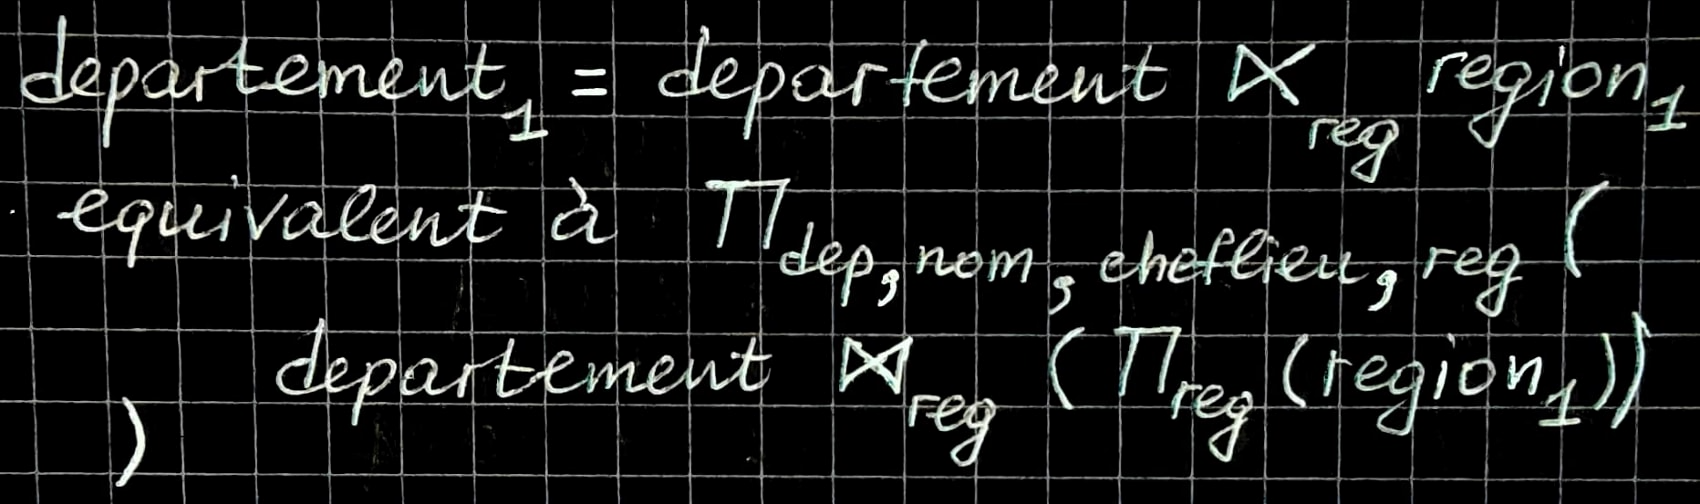 departement₁ = departement ⋉_reg region₁
equivalent à Π_dep,nom,cheflieu,reg (
departement ⋈_reg (Π_reg (region₁))
)